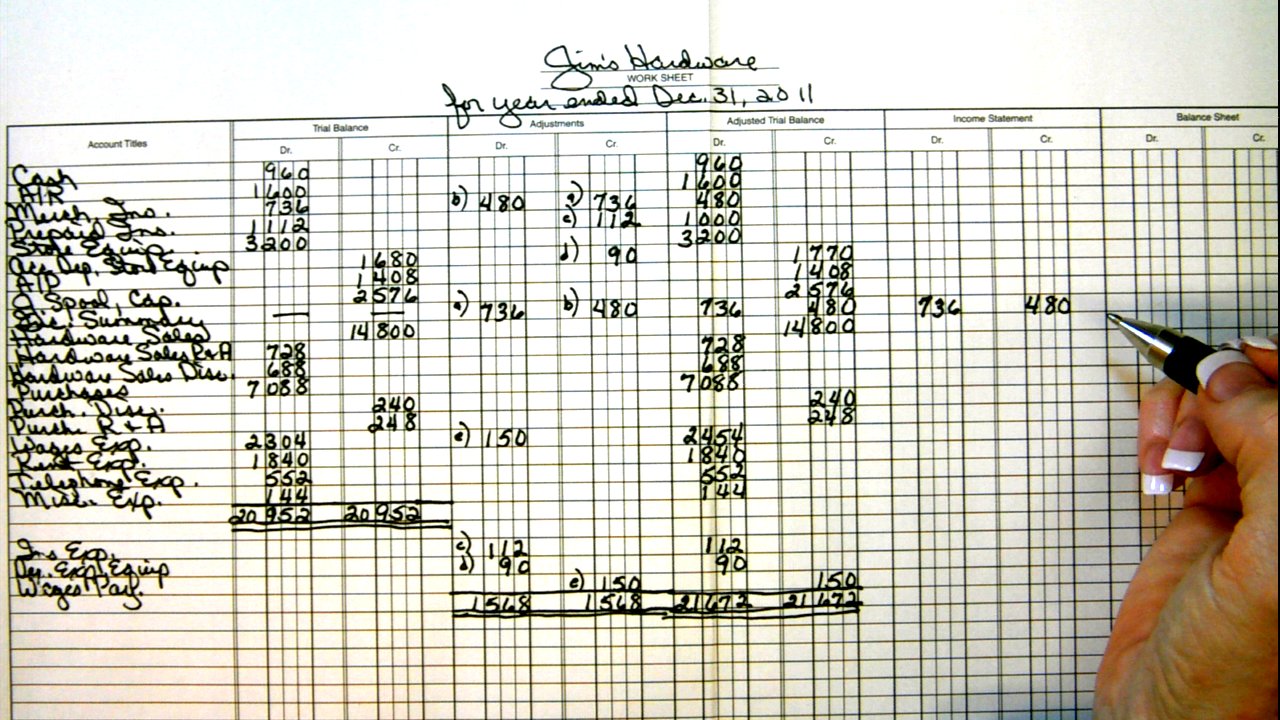 Jim's Hardware
WORK SHEET
for year ended Dec. 31, 2011
Account Titles Trial Balance Adjustments Adjusted Trial Balance Income Statement Balance Sheet
Dr. Cr. Dr. Cr. Dr. Cr. Dr. Cr. Dr. Cr.
Cash 960 960
A/R 1600 1600
Merch. Inv. 736 b) 480 a) 736 480
Prepaid Ins. 1112 c) 112 1000
Store Equip. 3200 3200
Acc. Dep. Store Equip 1680 d) 90 1770
A/P 1408 1408
J. Spool, Cap. 2576 2576
Inc. Summary — — a) 736 b) 480 736 480 736 480
Hardware Sales 14800 14800
Hardware Sales R&A 728 728
Hardware Sales Disc. 688 688
Purchases 7088 7088
Purch. Disc. 240 240
Purch. R & A 248 248
Wages Exp. 2304 e) 150 2454
Rent Exp. 1840 1840
Telephone Exp. 552 552
Misc. Exp. 144 144
20952 20952
Ins Exp. c) 112 112
Dep. Exp. Equip d) 90 90
Wages Pay. e) 150 150
1568 1568 21672 21672